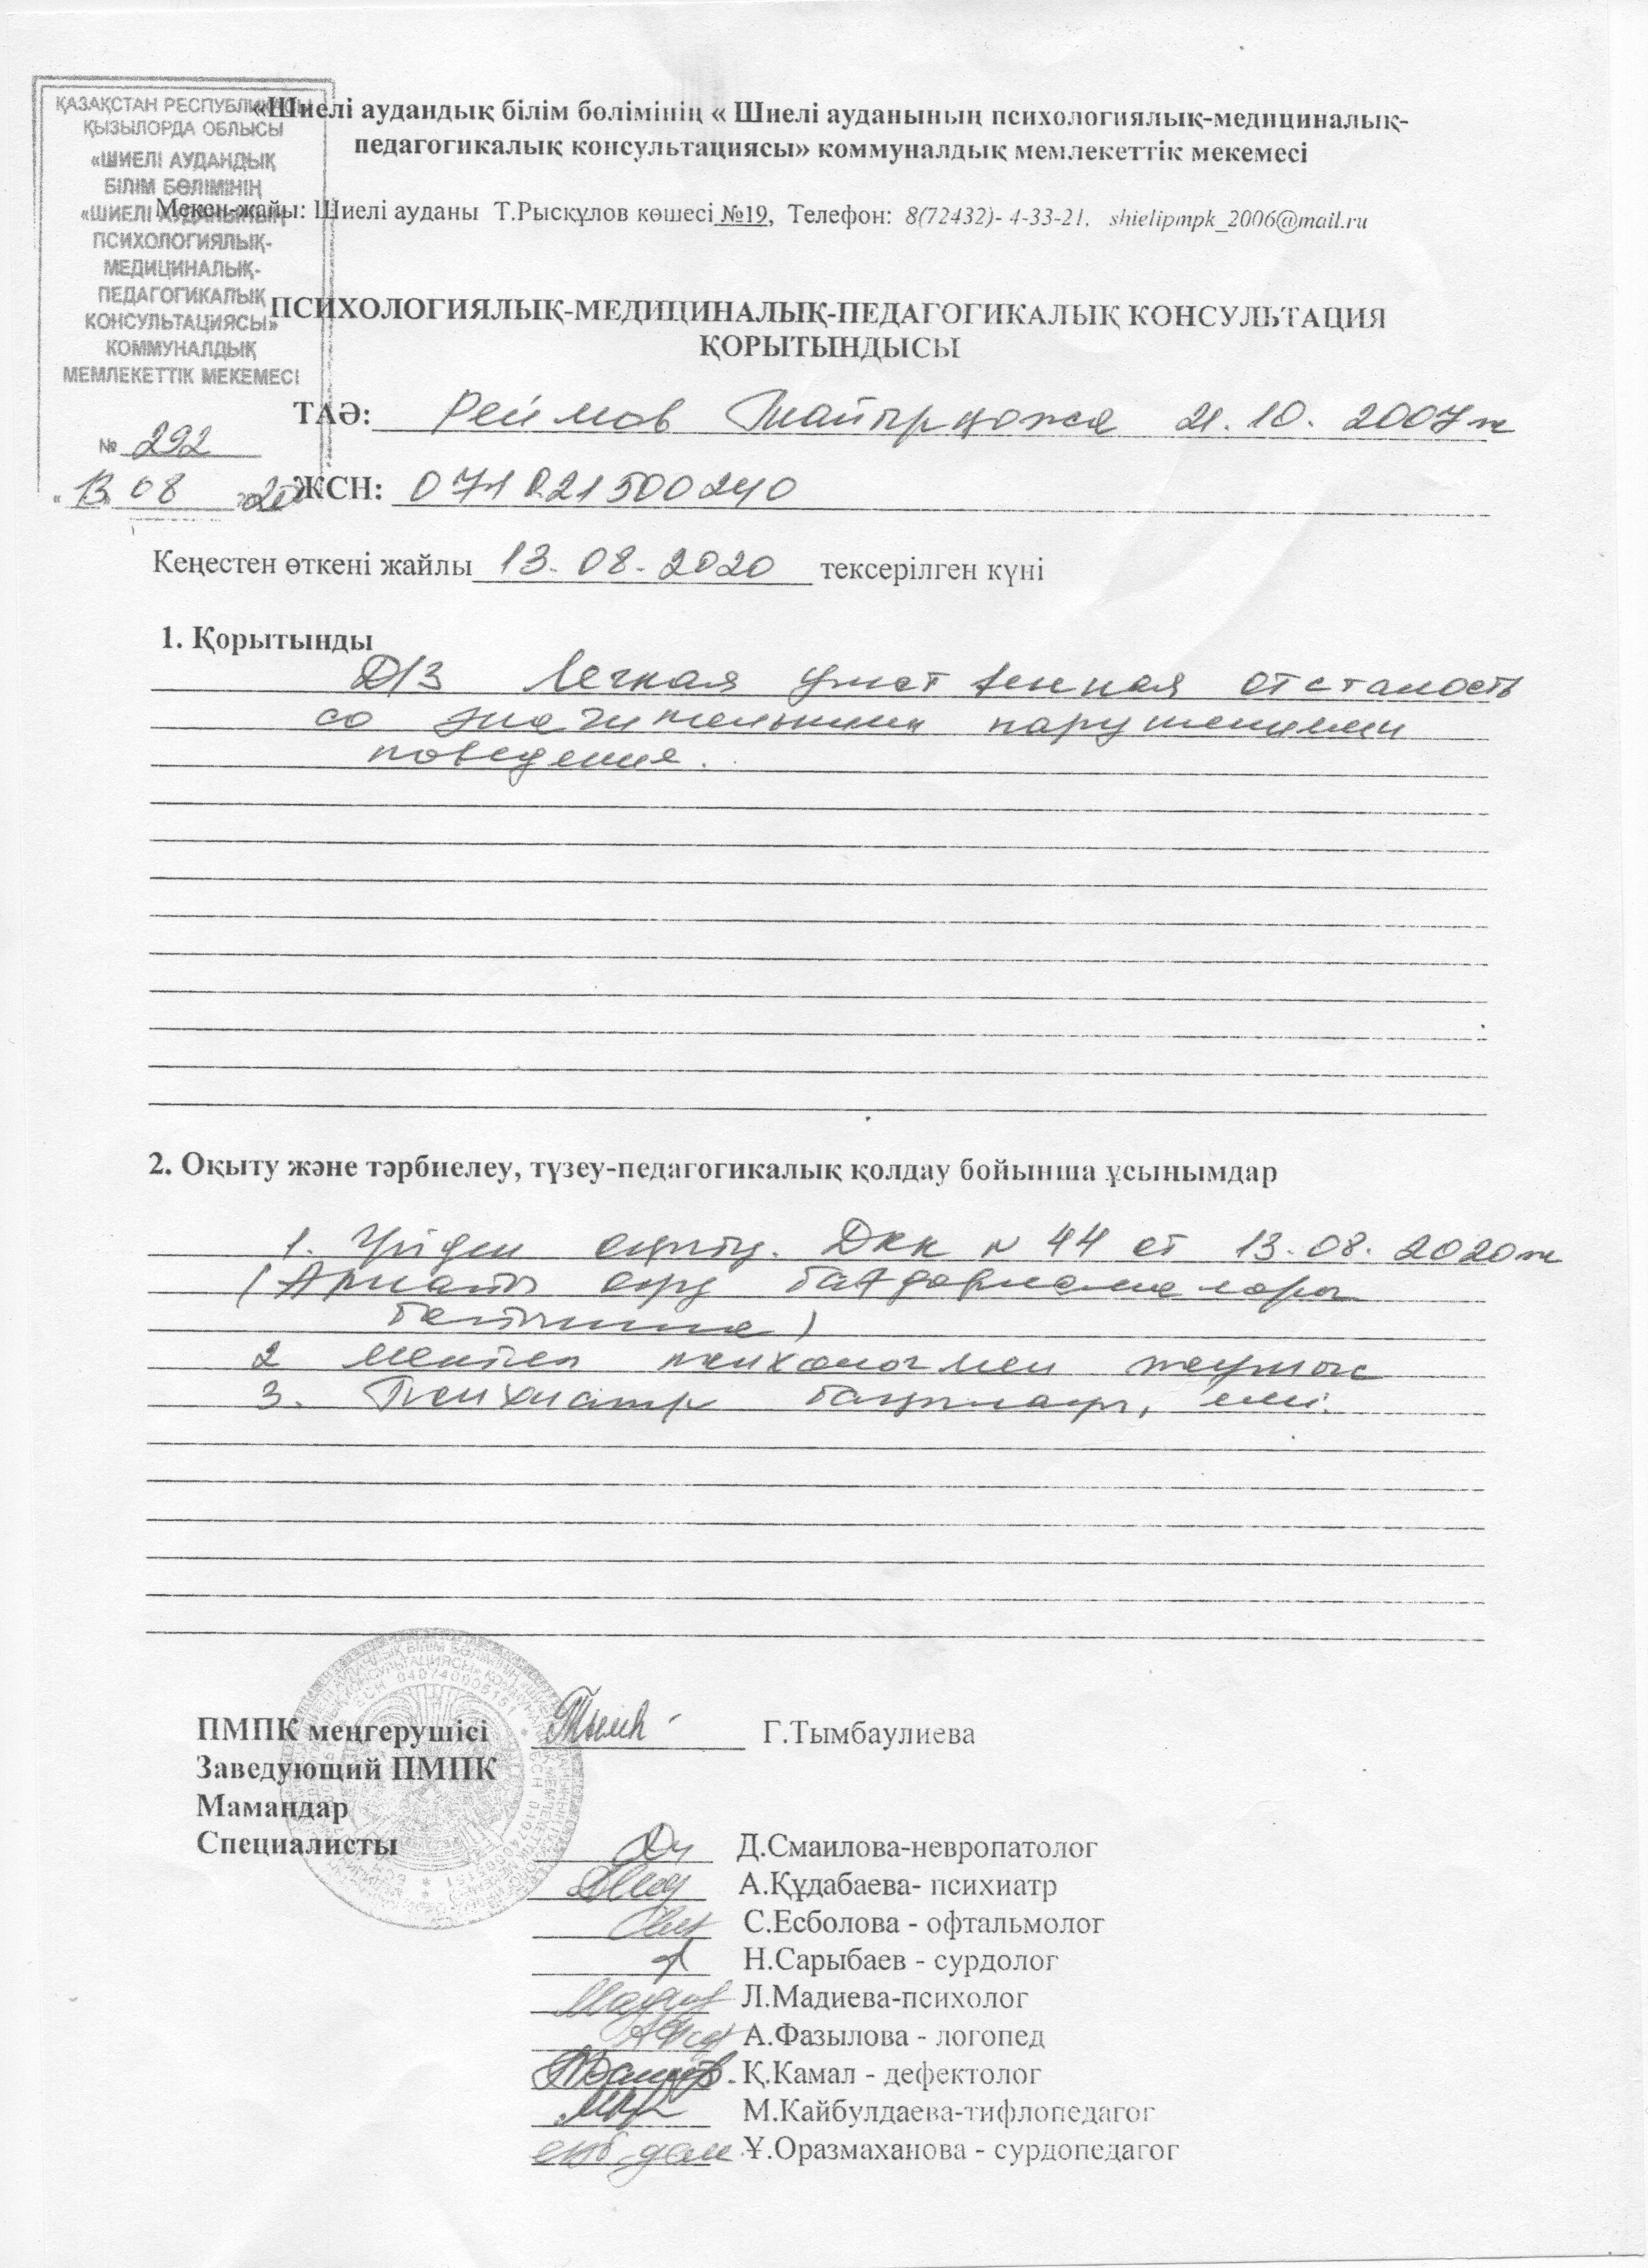 ҚАЗАҚСТАН РЕСПУБЛИКАСЫ
ҚЫЗЫЛОРДА ОБЛЫСЫ
«ШИЕЛІ АУДАНДЫҚ
БІЛІМ БӨЛІМІНІҢ
«ШИЕЛІ АУДАНЫНЫҢ
ПСИХОЛОГИЯЛЫҚ-
МЕДИЦИНАЛЫҚ-
ПЕДАГОГИКАЛЫҚ
КОНСУЛЬТАЦИЯСЫ»
КОММУНАЛДЫҚ
МЕМЛЕКЕТТІК МЕКЕМЕСІ
№ 292
«13» 08 2020
«Шиелі аудандық білім бөлімінің « Шиелі ауданының психологиялық-медициналық-
педагогикалық консультациясы» коммуналдық мемлекеттік мекемесі
Мекен-жайы: Шиелі ауданы Т.Рысқұлов көшесі №19, Телефон: 8(72432)- 4-33-21. shielipmpk_2006@mail.ru
ПСИХОЛОГИЯЛЫҚ-МЕДИЦИНАЛЫҚ-ПЕДАГОГИКАЛЫҚ КОНСУЛЬТАЦИЯ
ҚОРЫТЫНДЫСЫ
ТАӘ: Реймов 21.10.2007ж
ЖСН: 071021500240
Кеңестен өткені жайлы 13.08.2020 тексерілген күні
1. Қорытынды
Д/З Легкая умственная отсталость
со значительными нарушениями
поведения.
2. Оқыту және тәрбиелеу, түзеу-педагогикалық қолдау бойынша ұсынымдар
1. Үйден оқыту. Дкк № 44 от 13.08.2020ж
(Арнайы оқу бағдарламалары
бойынша)
2 Мектеп психологпен жұмыс
3. Психиатр бақылауы, емі.
ПМПК меңгерушісі Г.Тымбаулиева
Заведующий ПМПК
Мамандар
Специалисты
Д.Смаилова-невропатолог
А.Құдабаева- психиатр
С.Есболова - офтальмолог
Н.Сарыбаев - сурдолог
Л.Мадиева-психолог
А.Фазылова - логопед
Қ.Камал - дефектолог
М.Кайбулдаева-тифлопедагог
Ұ.Оразмаханова - сурдопедагог